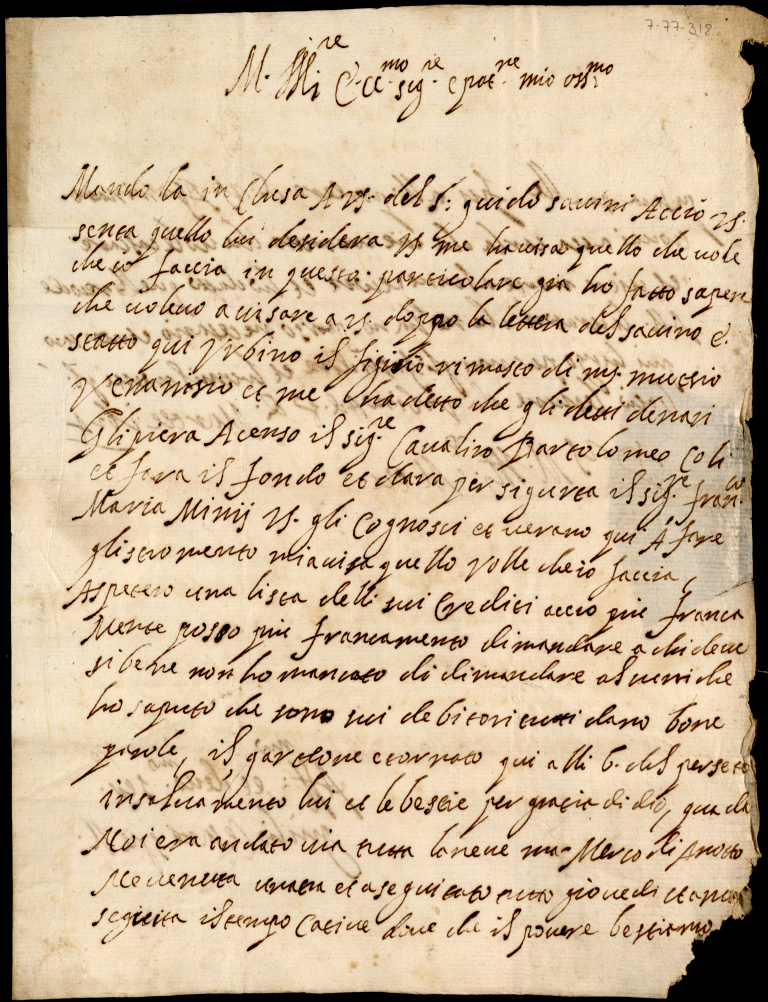 7-77-318
M. Illre Ecc.mo sig.re e pat.re mio oss.mo
Mando la in Chusa A VS. del S: guido savini Acciò VS.
senta quello lui desidera VS. me havisa quello che vole
che io faccia in questa particolare gia ho fatto sapere
che volevo avisare a VS. doppo la lettera del savino è
statto qui Vrbino il figiolo rimasto di m. mutsio
Venanosio et me ha detto che gli detti denari
Gli piera Acenso il sig.re Cavaliro Bartolomeo Coli
et fara il fondo et dara per sigurta il sig.re Fran.co
Maria Minij VS. gli Cognosci et verano qui A fare
gli stromento mi avisa quello volle che io faccia,
Aspetero una lista delli sui Crediti accio piu franca
Mente posso piu francamento dimandare a chi deve
si bene non ho mancato di dimandare al cuni che
ho saputo che sono sui debitori tutti dano bone
parole, il gardone è tornato qui alli 6. del
in salvamento lui et le bestie per gratia di dio, qua da
Noi era andato via tutta la neve ma Mercodi Anotto
Ne venuta et a seguitato tutto giovedi et
seguita il tempo Cative dove che il povere bestiamo